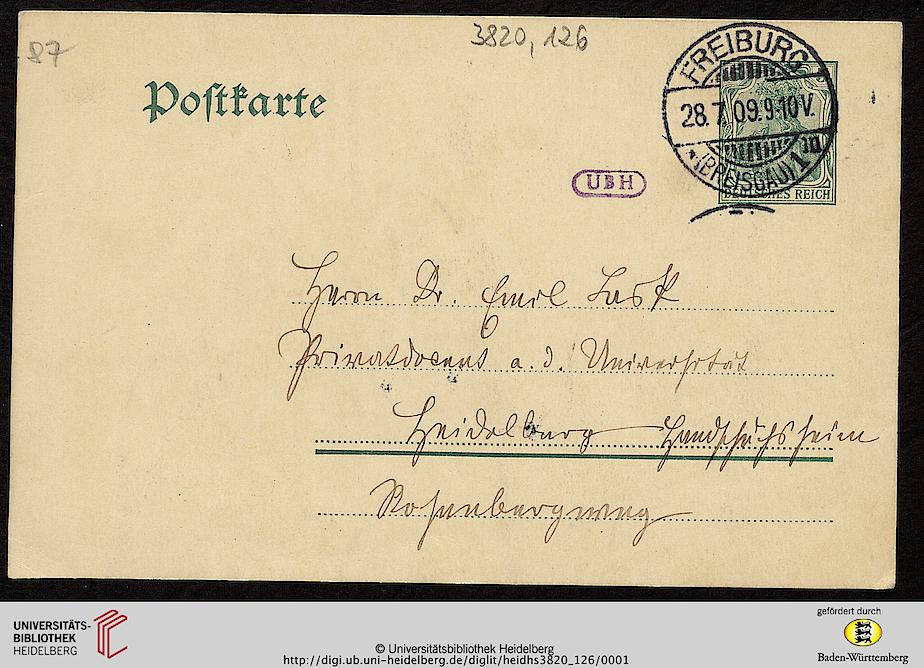 87
3820, 126
Postkarte
FREIBURG
28.7.09.9-10V.
*(BREISGAU)1
DEUTSCHES REICH
UBH
Herrn Dr. Emil Lask
Privatdocent a. d. Universität
Heidelberg Handschuhsheim
Rosenbergweg
UNIVERSITÄTS-
BIBLIOTHEK
HEIDELBERG
© Universitätsbibliothek Heidelberg
http://digi.ub.uni-heidelberg.de/diglit/heidhs3820_126/0001
gefördert durch
Baden-Württemberg